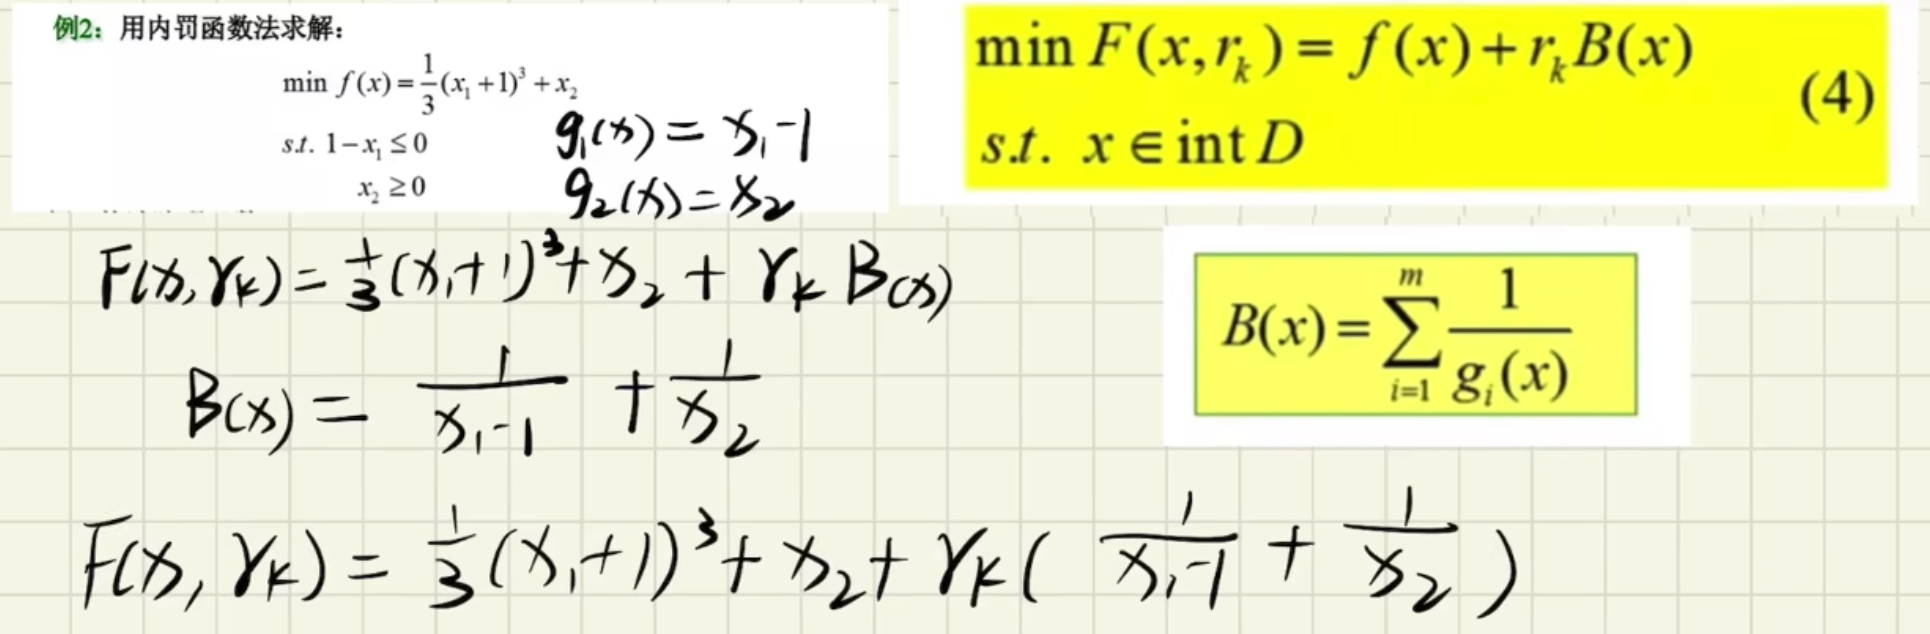 例2：用内罚函数法求解：
min f(x)=1/3(x₁+1)³+x₂
s.t. 1−x₁≤0
x₂≥0
g₁(x)=x₁-1
g₂(x)=x₂
min F(x,rₖ)=f(x)+rₖB(x)
s.t. x∈int D
(4)
F(x,rₖ)=1/3(x₁+1)³+x₂+rₖB(x)
B(x)=∑ᵢ₌₁ᵐ 1/gᵢ(x)
B(x)=1/(x₁-1)+1/x₂
F(x,rₖ)=1/3(x₁+1)³+x₂+rₖ(1/(x₁-1)+1/x₂)